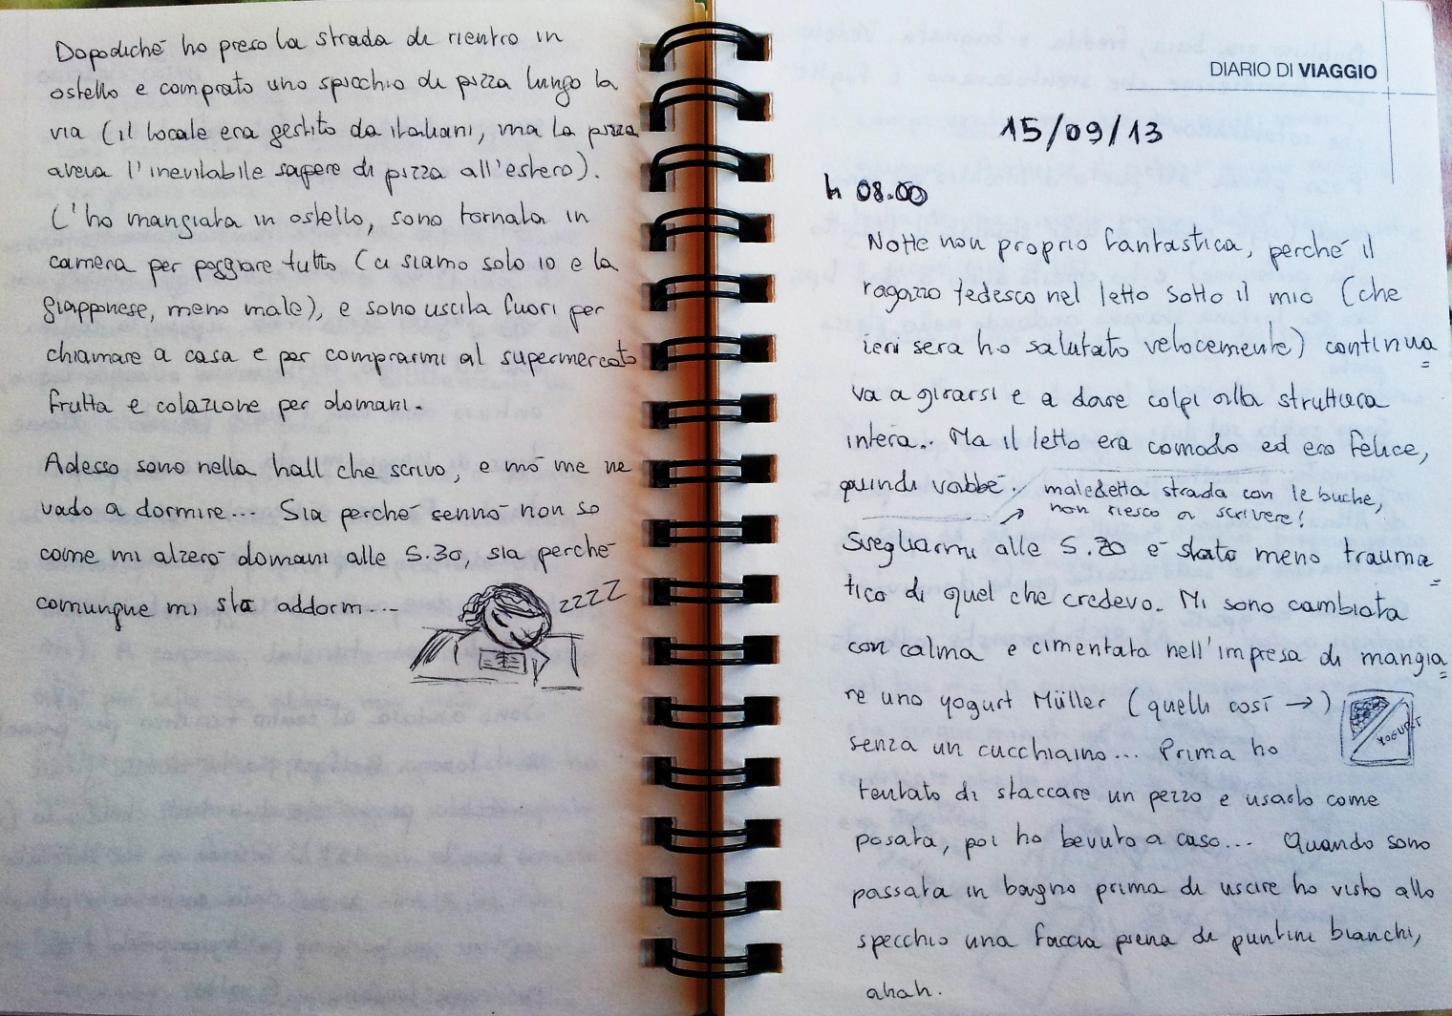 Dopodiché ho preso la strada di rientro in
ostello e comprato uno spicchio di pizza lungo la
via (il locale era gestito da italiani, ma la pizza
aveva l'inevitabile sapore di pizza all'estero).
L'ho mangiata in ostello, sono tornata in
camera per poggiare tutto (ci siamo solo io e la
giapponese, meno male), e sono uscita fuori per
chiamare a casa e per comprarmi al supermercato
frutta e colazione per domani.
Adesso sono nella hall che scrivo, e mó me ne
vado a dormire... Sia perché sennò non so
come mi alzerò domani alle 5.30, sia perché
comunque mi sto addorm...
zzzz
DIARIO DI VIAGGIO
15/09/13
h 08.00
Notte non proprio fantastica, perché il
ragazzo tedesco nel letto sotto il mio (che
ieri sera ho salutato velocemente) continua
va a girarsi e a dare colpi alla struttura
intera.. Ma il letto era comodo ed ero felice,
quindi vabbé.
maledetta strada con le buche,
non riesco a scrivere!
Svegliarmi alle 5.20 è stato meno trauma
tico di quel che credevo. Mi sono cambiata
con calma e cimentata nell'impresa di mangia
re uno yogurt Müller (quelli così →)
YOGURT
senza un cucchiaino... Prima ho
tentato di staccare un pezzo e usarlo come
posata, poi ho bevuto a caso... Quando sono
passata in bagno prima di uscire ho visto allo
specchio una faccia piena di puntini bianchi,
ahah.